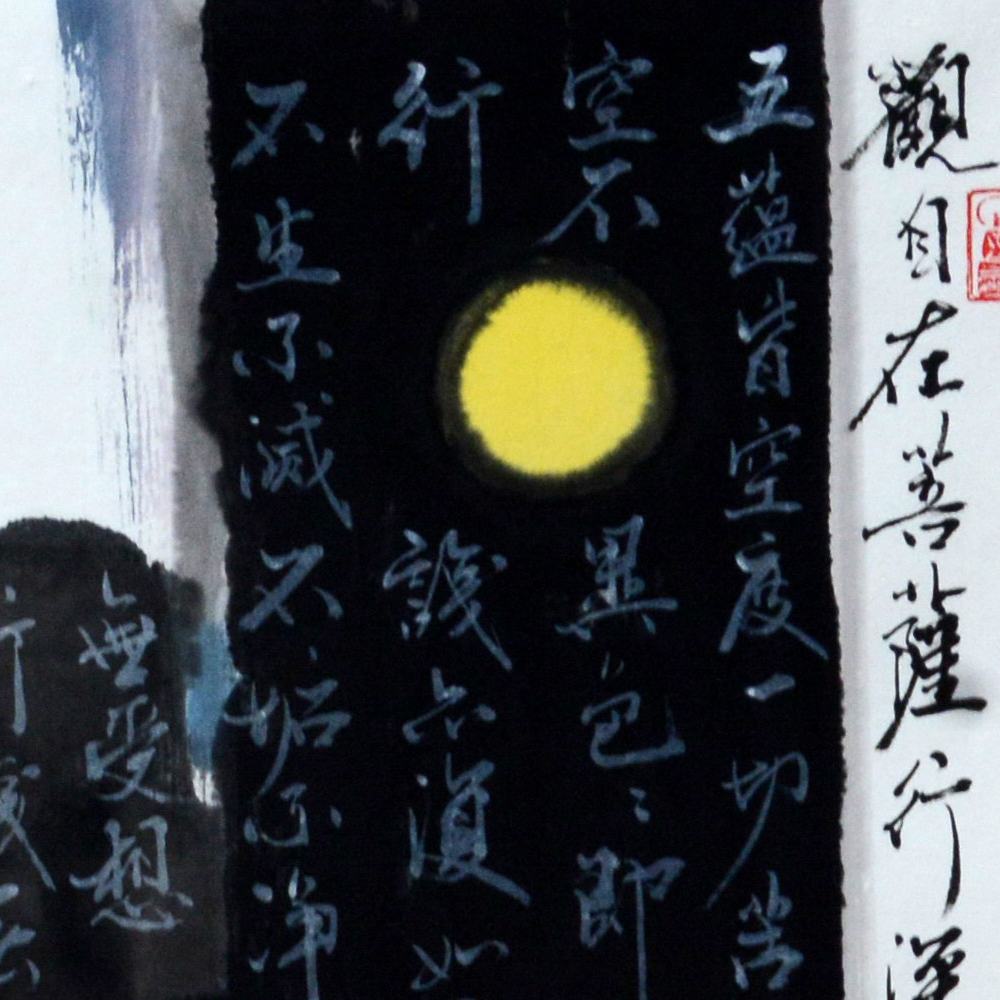 觀自在菩薩行深
五蘊皆空度一切苦
空不異色〻即
行識亦復如
不生不滅不垢不淨
無受想